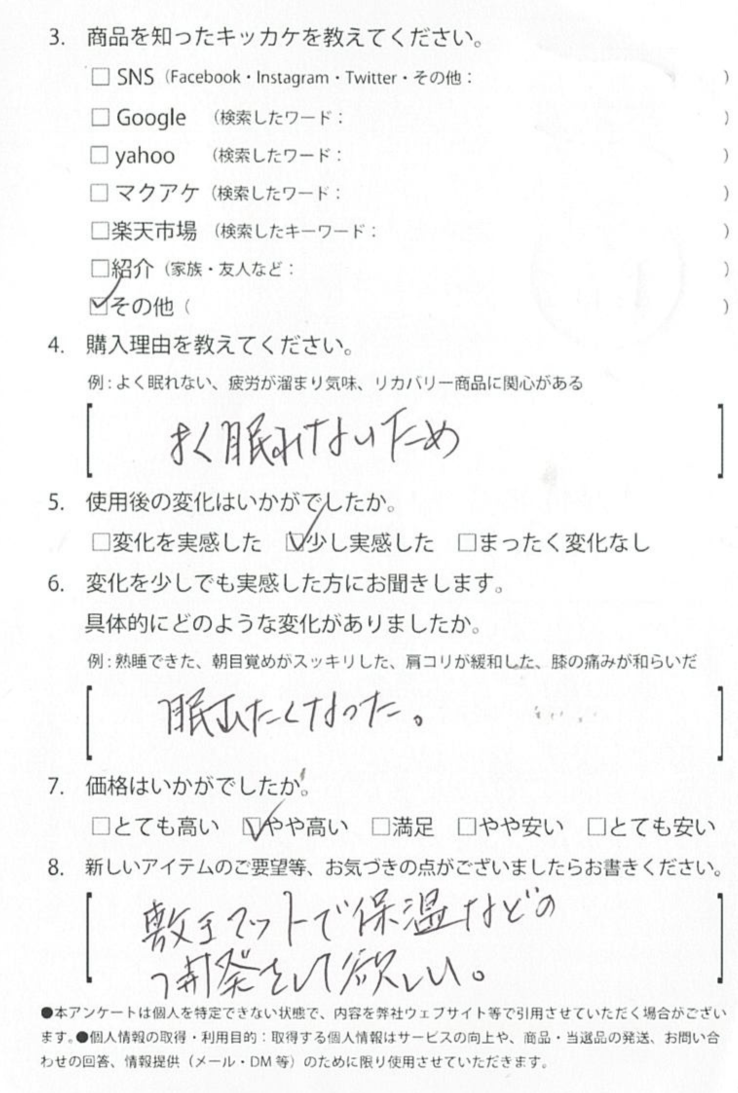 3. 商品を知ったキッカケを教えてください。
□ SNS（Facebook・Instagram・Twitter・その他： ）
□ Google （検索したワード： ）
□ yahoo （検索したワード： ）
□ マクアケ（検索したワード： ）
□楽天市場（検索したキーワード： ）
□紹介（家族・友人など： ）
☑その他（ ）
4. 購入理由を教えてください。
例：よく眠れない、疲労が溜まり気味、リカバリー商品に関心がある
よく眠れないため
5. 使用後の変化はいかがでしたか。
□変化を実感した ☑少し実感した □まったく変化なし
6. 変化を少しでも実感した方にお聞きします。
具体的にどのような変化がありましたか。
例：熟睡できた、朝目覚めがスッキリした、肩コリが緩和した、膝の痛みが和らいだ
眠たくなった。
7. 価格はいかがでしたか。
□とても高い ☑やや高い □満足 □やや安い □とても安い
8. 新しいアイテムのご要望等、お気づきの点がございましたらお書きください。
敷きマットで保温などの
開発をして欲しい。
●本アンケートは個人を特定できない状態で、内容を弊社ウェブサイト等で引用させていただく場合がござい
ます。●個人情報の取得・利用目的：取得する個人情報はサービスの向上や、商品・当選品の発送、お問い合
わせの回答、情報提供（メール・DM 等）のために限り使用させていただきます。